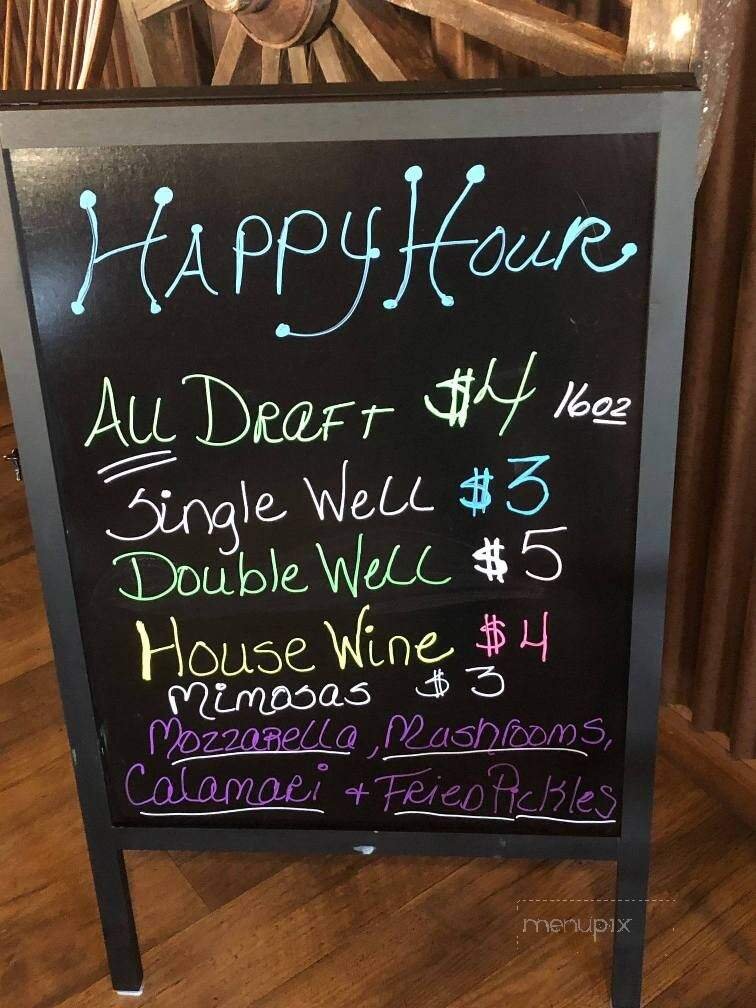 Happy Hour
All Draft $4 16oz
Single Well $3
Double Well $5
House Wine $4
Mimosas $3
Mozzarella, Mushrooms,
Calamari + Fried Pickles
menupix